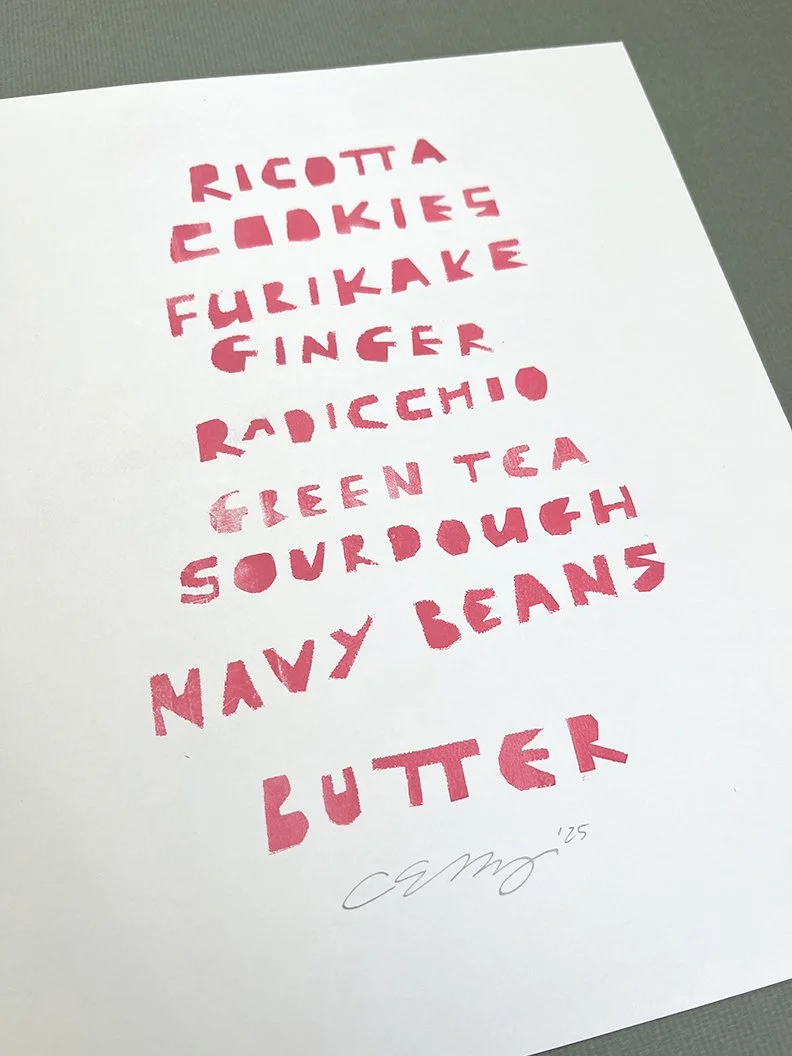 RICOTTA
COOKIES
FURIKAKE
GINGER
RADICCHIO
GREEN TEA
SOURDOUGH
NAVY BEANS
BUTTER
'25